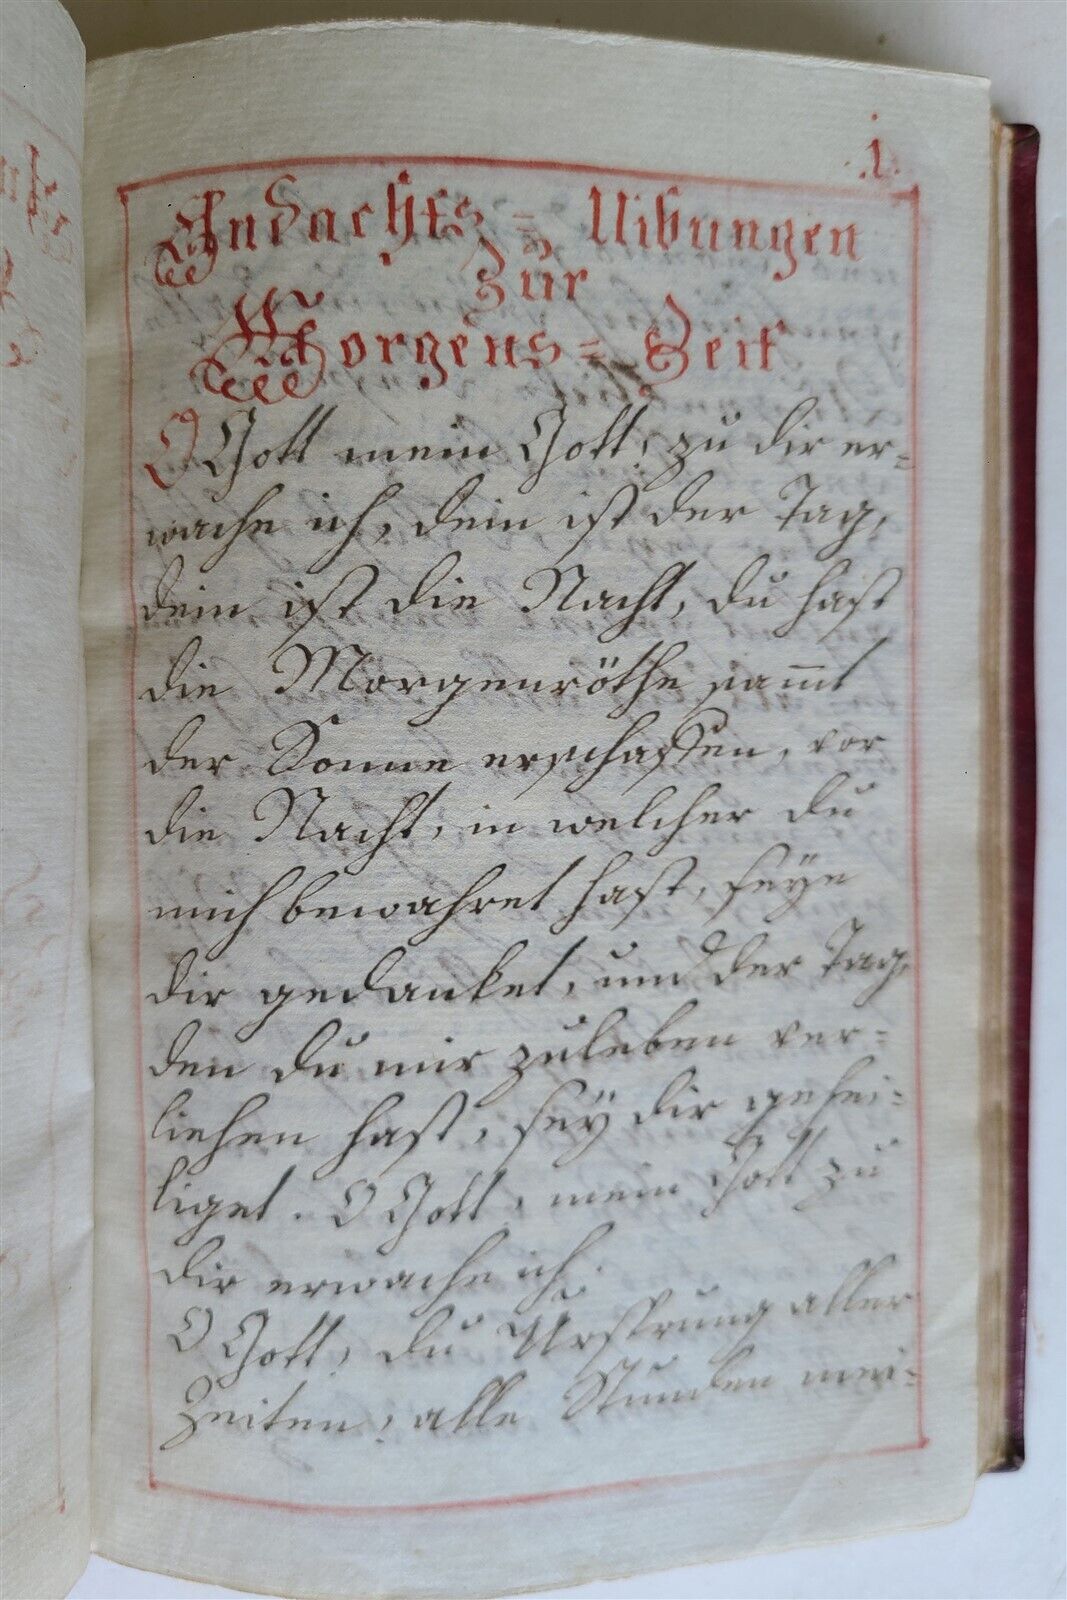 1.
Andachts= Uibungen
Zur
Morgens= Zeit
O Gott mein Gott, zu dir er=
wache ich, dein ist der Tag,
dein ist die Nacht, du hast
die Morgenröthe sam̅t
der Sonne erschaffen, vor
die Nacht, in welcher du
mich bewahret hast, seÿe
dir gedanket, und der Tag,
den du mir zuleben ver=
liehen hast, seÿ dir gehei=
liget. O Gott, mein Gott zu
dir erwache ich.
O Gott, du Ursprung aller
Zeiten, alle Stunden mei=